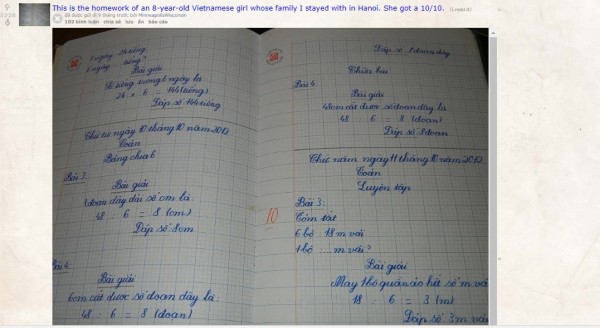 This is the homework of an 8-year-old Vietnamese girl whose family I stayed with in Hanoi. She got a 10/10.
đã được gửi đi 9 tháng trước bởi
bình luận chia sẻ lưu ẩn báo cáo
1 ngày : 24 tiếng
6 ngày : tiếng?
Bài giải
Số tiếng trong 6 ngày là:
24 x 6 = 144 (tiếng)
Đáp số: 144 tiếng
Thứ tư ngày 10 tháng 10 năm 2012
Toán
Bảng chia 6
Bài 3:
Bài giải
1 đoạn dây dài số cm là:
48 : 6 = 8 (cm)
Đáp số: 8cm
Bài 4:
Bài giải
6cm cắt được số đoạn dây là:
48 : 6 = 8 (đoạn)
Đáp số: 8 đoạn dây
Chữa bài
Bài 4:
Bài giải
48cm cắt được số đoạn dây là:
48 : 6 = 8 (đoạn)
Đáp số: 8 đoạn
Thứ năm ngày 11 tháng 10 năm 2012
Toán
Luyện tập
10
Bài 3:
Tóm tắt
6 bộ : 18 m vải
1 bộ : ... m vải?
Bài giải
May 1 bộ quần áo hết số m vải
18 : 6 = 3 (m)
Đáp số: 3 m vải